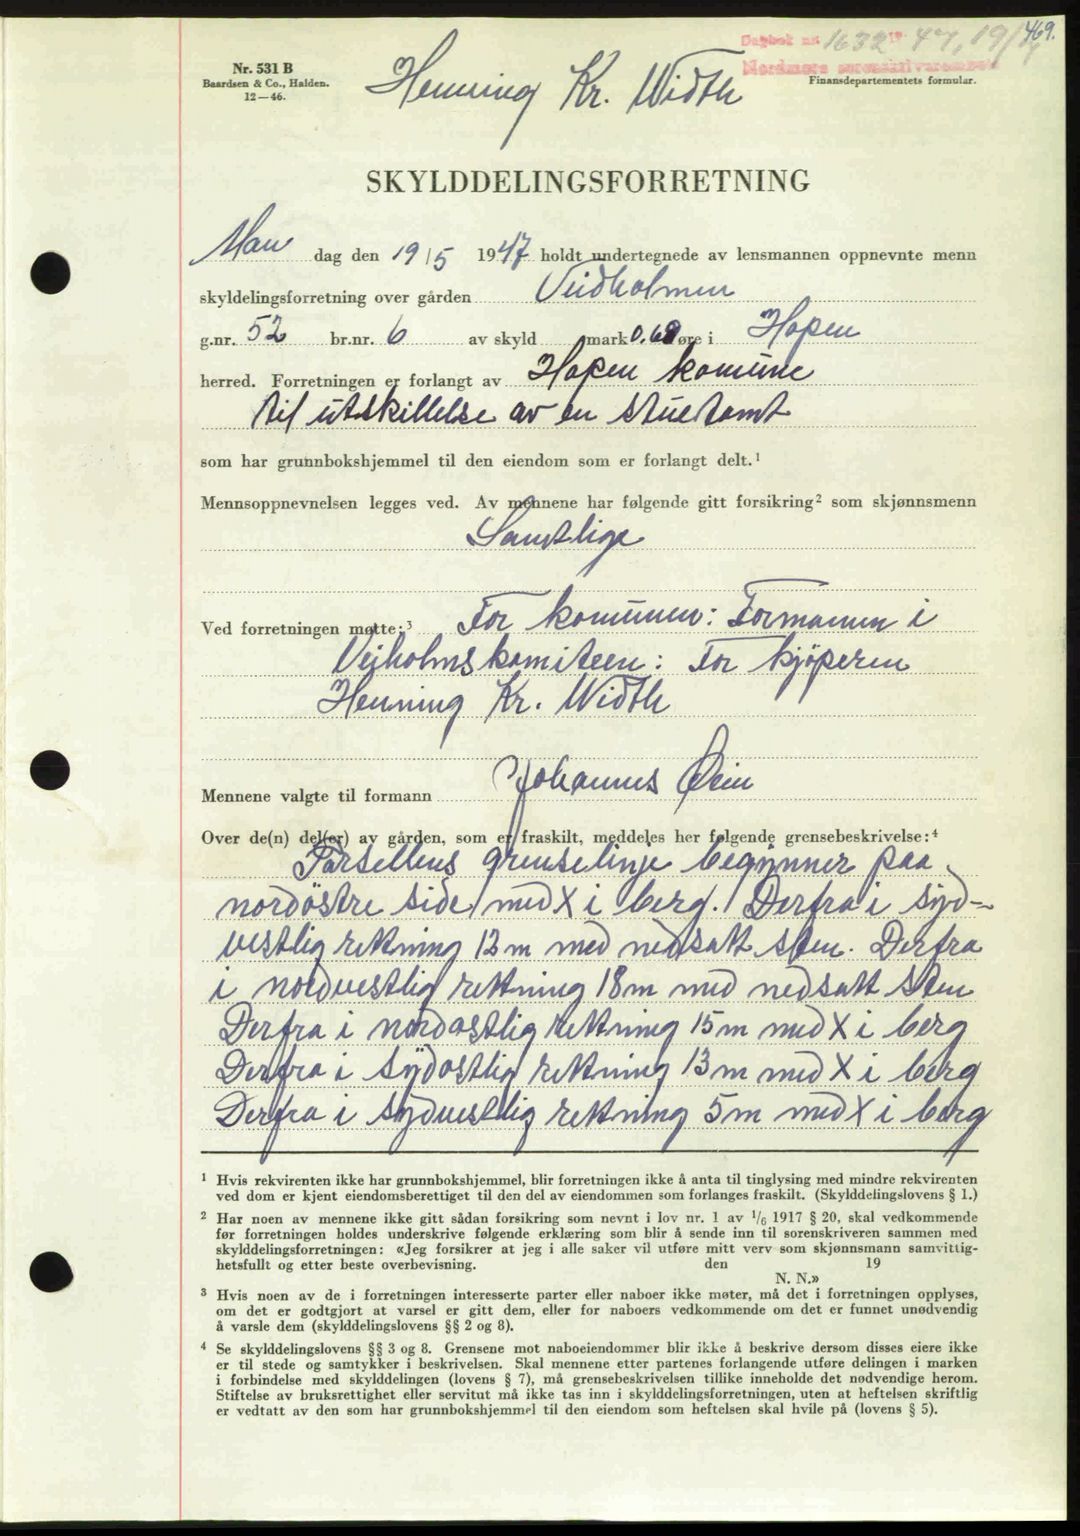 469.
Dagbok nr 1632 19 47, 19/
Nordmøre sorenskriverembete
Nr. 531 B
Baardsen & Co., Halden.
12—46.
Henning Kr. Width
Finansdepartementets formular.
SKYLDDELINGSFORRETNING
Man dag den 19/5 1947 holdt undertegnede av lensmannen oppnevnte menn
skyldelingsforretning over gården Veidholmen
g.nr. 52 br.nr. 6 av skyld mark 0.69 øre i Hopen
herred. Forretningen er forlangt av Hopen komune
til utskillelse av en stuetomt
som har grunnbokshjemmel til den eiendom som er forlangt delt.¹
Mennsoppnevnelsen legges ved. Av mennene har følgende gitt forsikring² som skjønnsmenn
Samtlige
Ved forretningen møtte:³ For komunen: Formannen i
Vejholmskomiteen: For kjöperen
Henning Kr. Width
Mennene valgte til formann Johannes Øien
Over de(n) del(er) av gården, som er fraskilt, meddeles her følgende grensebeskrivelse:⁴
Parsellens grenselinje begynner paa
nordöstre side med X i berg. Derfra i syd-
vestlig rettning 12 m med nedsatt sten. Derfra
i nordvestlig rettning 18 m med nedsatt sten
Derfra i nordostlig rettning 15 m med X i berg
Derfra i sydostlig rettning 13 m med X i berg
Derfra i sydvestlig rettning 5 m med X i berg
¹ Hvis rekvirenten ikke har grunnbokshjemmel, blir forretningen ikke å anta til tinglysing med mindre rekvirenten
ved dom er kjent eiendomsberettiget til den del av eiendommen som forlanges fraskilt. (Skylddelingslovens § 1.)
² Har noen av mennene ikke gitt sådan forsikring som nevnt i lov nr. 1 av 1/6 1917 § 20, skal vedkommende
før forretningen holdes underskrive følgende erklæring som blir å sende inn til sorenskriveren sammen med
skylddelingsforretningen: «Jeg forsikrer at jeg i alle saker vil utføre mitt verv som skjønnsmann samvittig-
hetsfullt og etter beste overbevisning. den 19
N. N.»
³ Hvis noen av de i forretningen interesserte parter eller naboer ikke møter, må det i forretningen opplyses,
om det er godtgjort at varsel er gitt dem, eller for naboers vedkommende om det er funnet unødvendig
å varsle dem (skylddelingslovens §§ 2 og 8).
⁴ Se skylddelingslovens §§ 3 og 8. Grensene mot naboeiendommer blir ikke å beskrive dersom disses eiere ikke
er til stede og samtykker i beskrivelsen. Skal mennene etter partenes forlangende utføre delingen i marken
i forbindelse med skylddelingen (lovens § 7), må grensebeskrivelsen tillike inneholde det nødvendige herom.
Stiftelse av bruksrettighet eller servitut må ikke tas inn i skylddelingsforretningen, uten at heftelsen skriftlig
er vedtatt av den som har grunnbokshjemmel til den eiendom som heftelsen skal hvile på (lovens § 5).